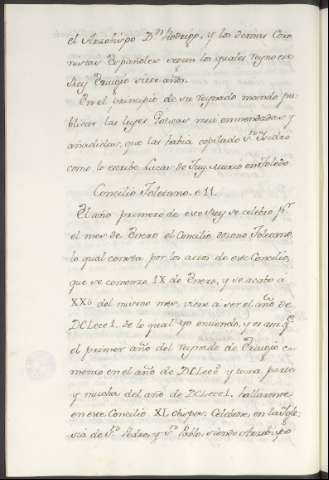 el Arzobispo D.n Rodrigo, y los demas Coro
nistas Españoles escriben los quales reyno este
Rey Eruigio siete años.
En el principio de su reynado mando pu
blicar las leyes Goticas muy enmendadas y
añadidas, que las habia copilado S.n Isidro
como lo escribe Lucas de Tuy murio en Toledo
Concilio Toletano. e 11.
El año primero de este Rey se celebro p.r
el mes de Enero el Concilio doceno Toletano,
lo qual consta por los actos de este Concilio,
que se comenzo IX de Enero, y se acabo á
XXV del mismo mes, viene a ser el año de
DCLccc1. de lo qual yo entiendo, y es asi q.e
el primer año del reynado de Eruigio co
menzo en el año de DCLccc.o y toma parte
y mucha del año de DCLccc1. hallaronse
en este Concilio XL obispos. Celebrose, en la Igle
sia de S.n Pedro, y S.n Pablo, siendo Arzobispo